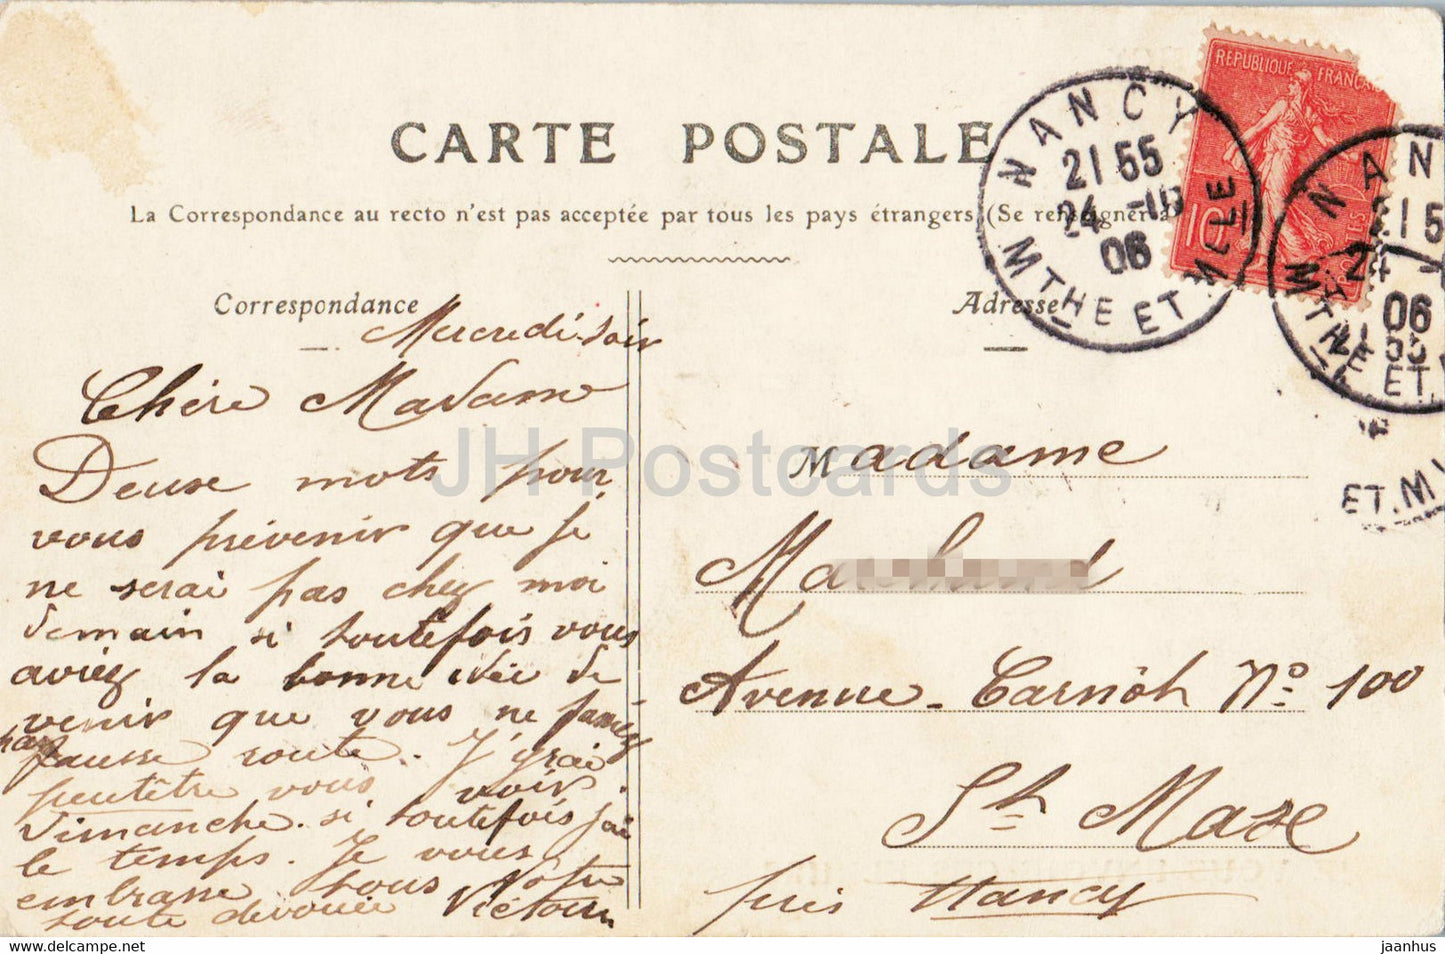 CARTE POSTALE
La Correspondance au recto n'est pas acceptée par tous les pays étrangers (Se renseigner à
Correspondance
Mercredi soir
Chère Madame
Deux mots pour
vous prévenir que je
ne serai pas chez moi
demain si toutefois vous
aviez la bonne idée de
venir que vous ne faniéz
pas fausse route. J'yrai
peutêtre vous voir
dimanche. si toutefois j'ai
le temps. Je vous
embrasse tous Votre
toute dévouée Victorin
Adresse
Madame
Avenue Carnôh Nº 100
St Maxe
près Nancy
REPUBLIQUE FRANCAI
10
NANCY
21 55
24 -10
06
MTHE ET MLLE
NAN
21 5
24
06
MTHE ET.
ET.M
JH Postcards
jaanhus